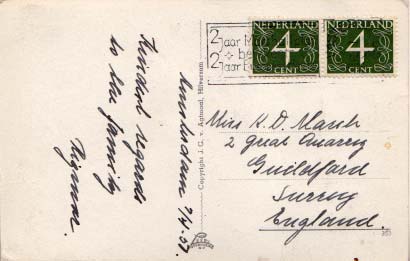 Amsterdam
Kindest regards
to the family
2
Jaar
2
Jaar
NEDERLAND
4
CENT
NEDERLAND
4
CENT
Copyright J. G. v. Agtmaal, Hilversum
Miss K. D. Marsh
2 Great Quarry
Guildford
Surrey
England.